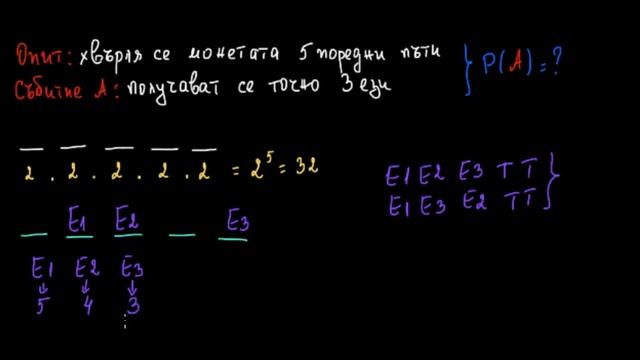 Опит: хвърля се монетата 5 поредни пъти
Събитие А: получават се точно 3 ези
} P(A) = ?
2 . 2 . 2 . 2 . 2 = 2⁵ = 32
E1 E2 E3 T T
E1 E3 E2 T T }
E1 E2 E3
E1 E2 E3
↓ ↓ ↓
5 4 3